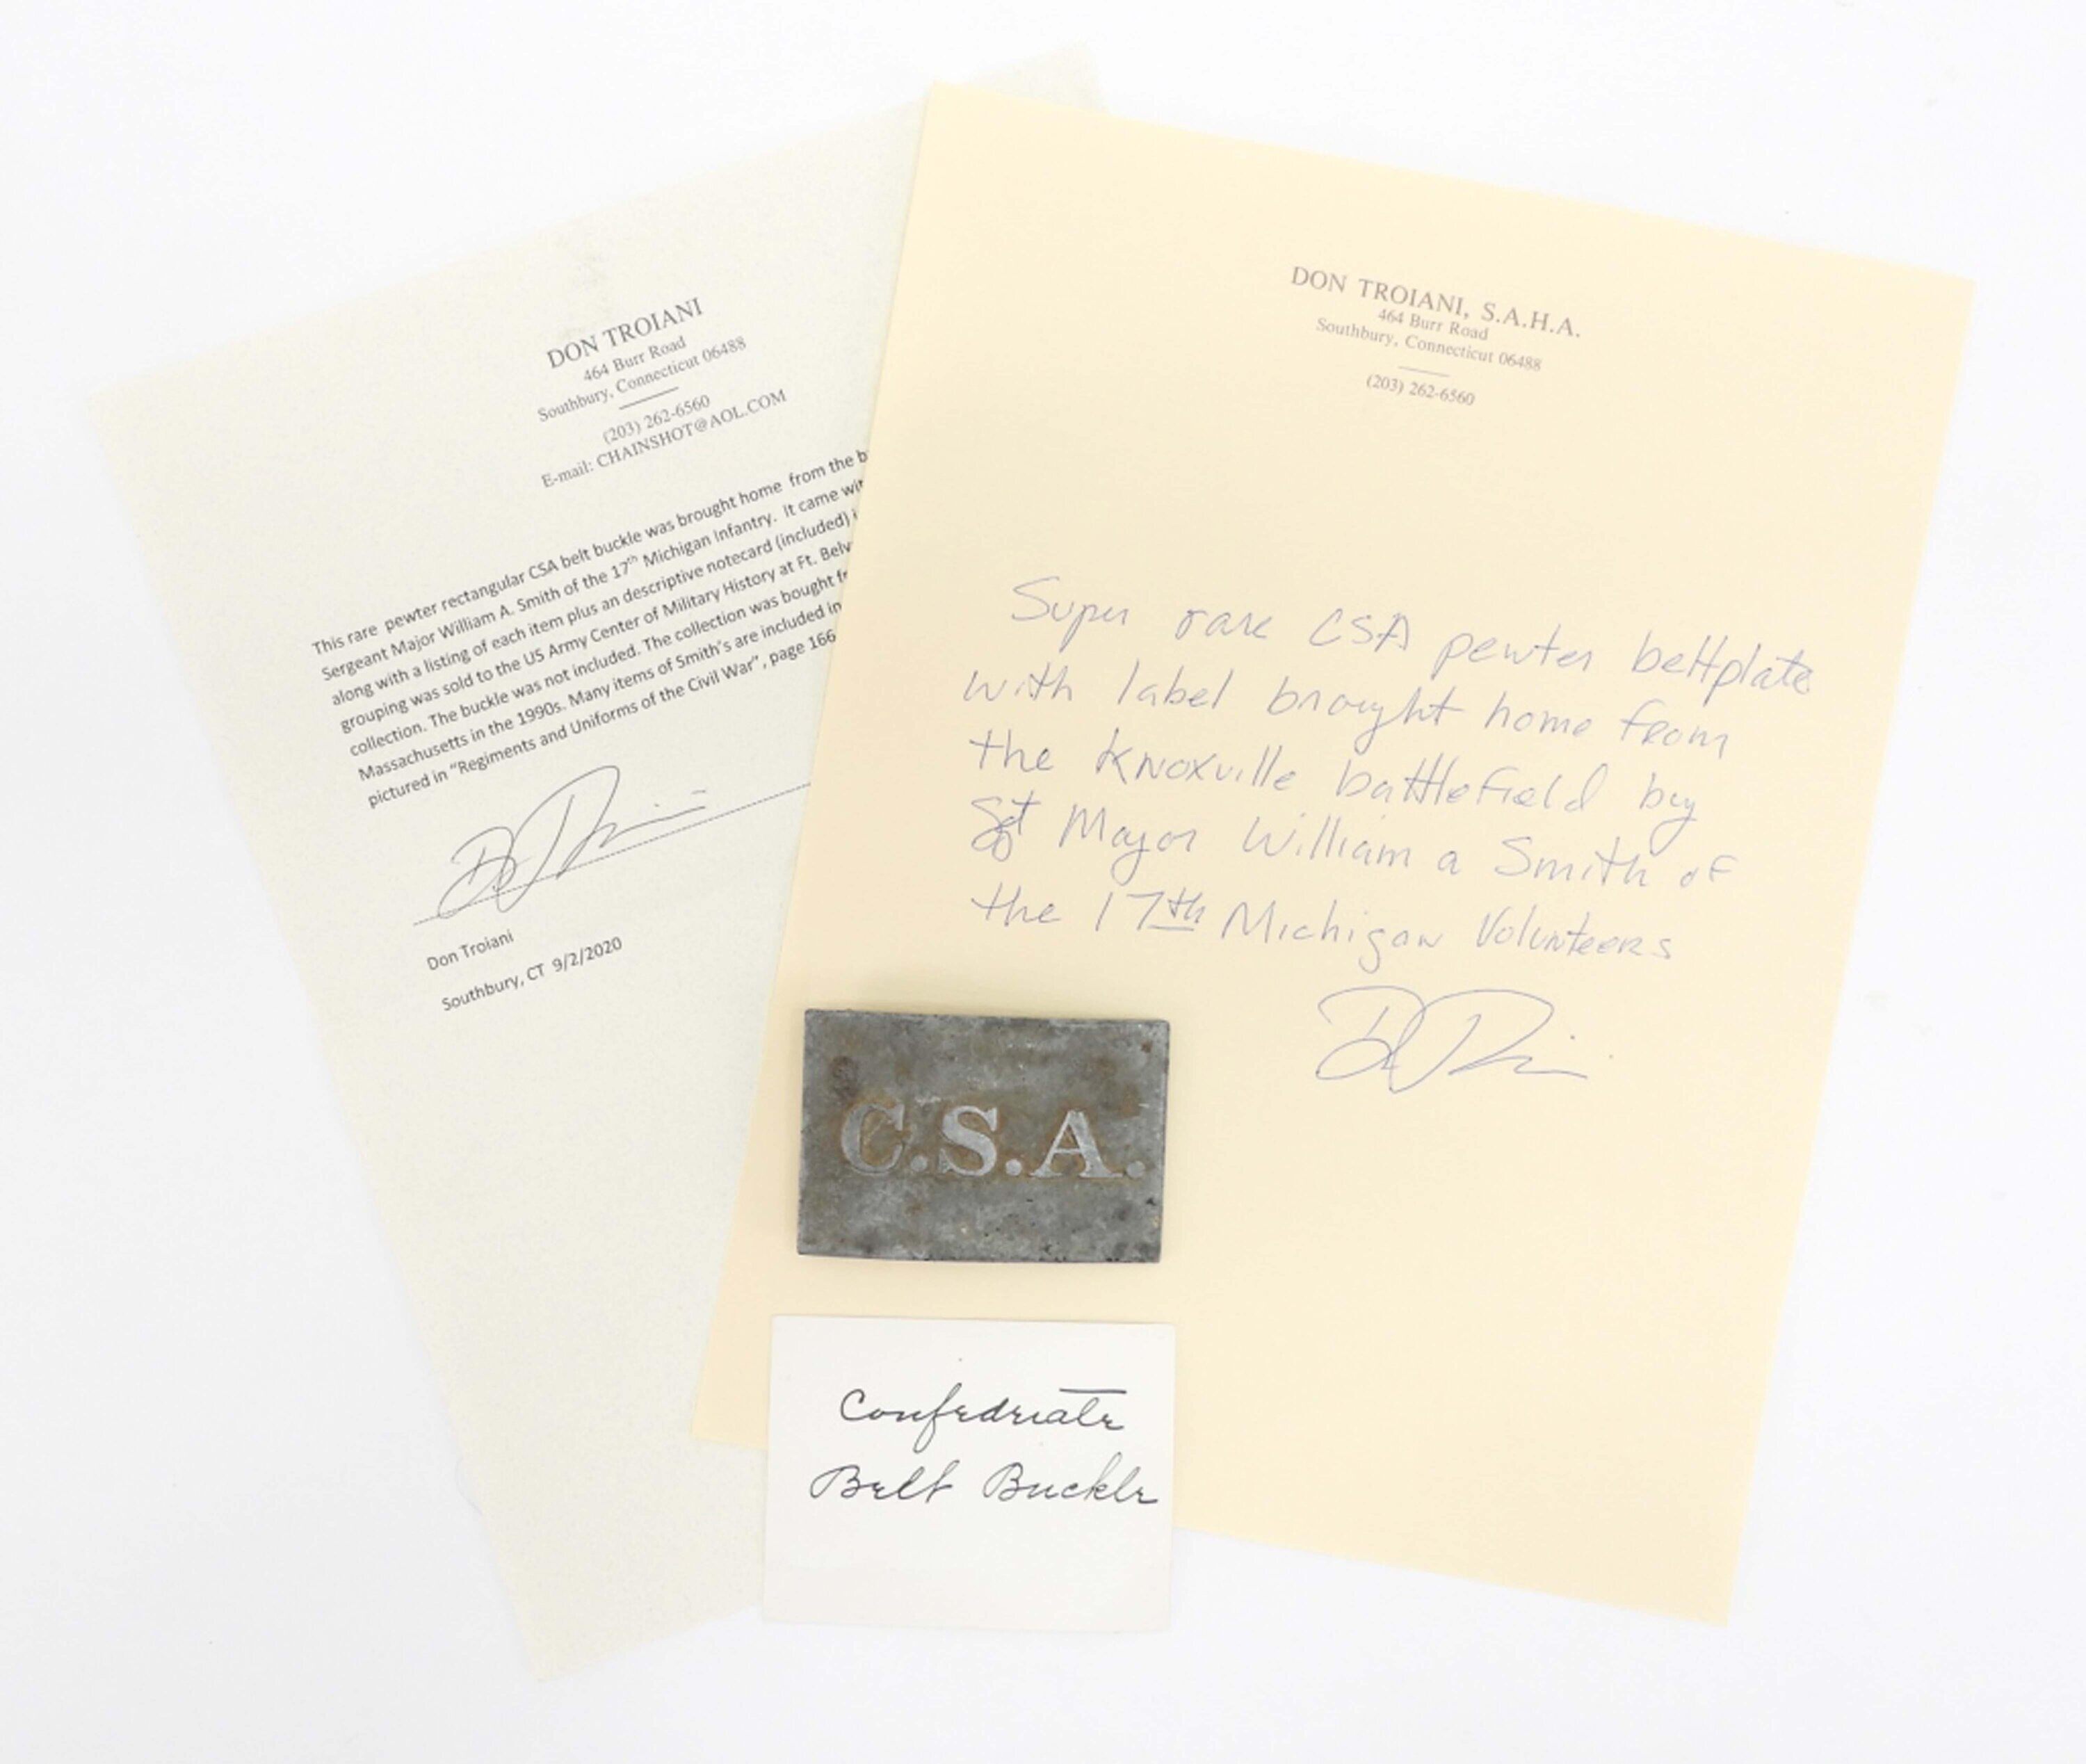 DON TROIANI
464 Burr Road
Southbury, Connecticut 06488
(203) 262-6560
E-mail: CHAINSHOT@AOL.COM
This rare pewter rectangular CSA belt buckle was brought home from the b
Sergeant Major William A. Smith of the 17th Michigan Infantry. It came wit
along with a listing of each item plus an descriptive notecard (included) i
grouping was sold to the US Army Center of Military History at Ft. Belv
collection. The buckle was not included. The collection was bought fr
Massachusetts in the 1990s. Many items of Smith's are included in
pictured in "Regiments and Uniforms of the Civil War", page 166
Don Troiani
Southbury, CT 9/2/2020
DON TROIANI, S.A.H.A.
464 Burr Road
Southbury, Connecticut 06488
(203) 262-6560
Super rare CSA pewter beltplate
with label brought home from
the Knoxville battlefield by
Sgt Major William a Smith of
the 17th Michigan Volunteers
C.S.A.
Confedriate
Belt Buckle